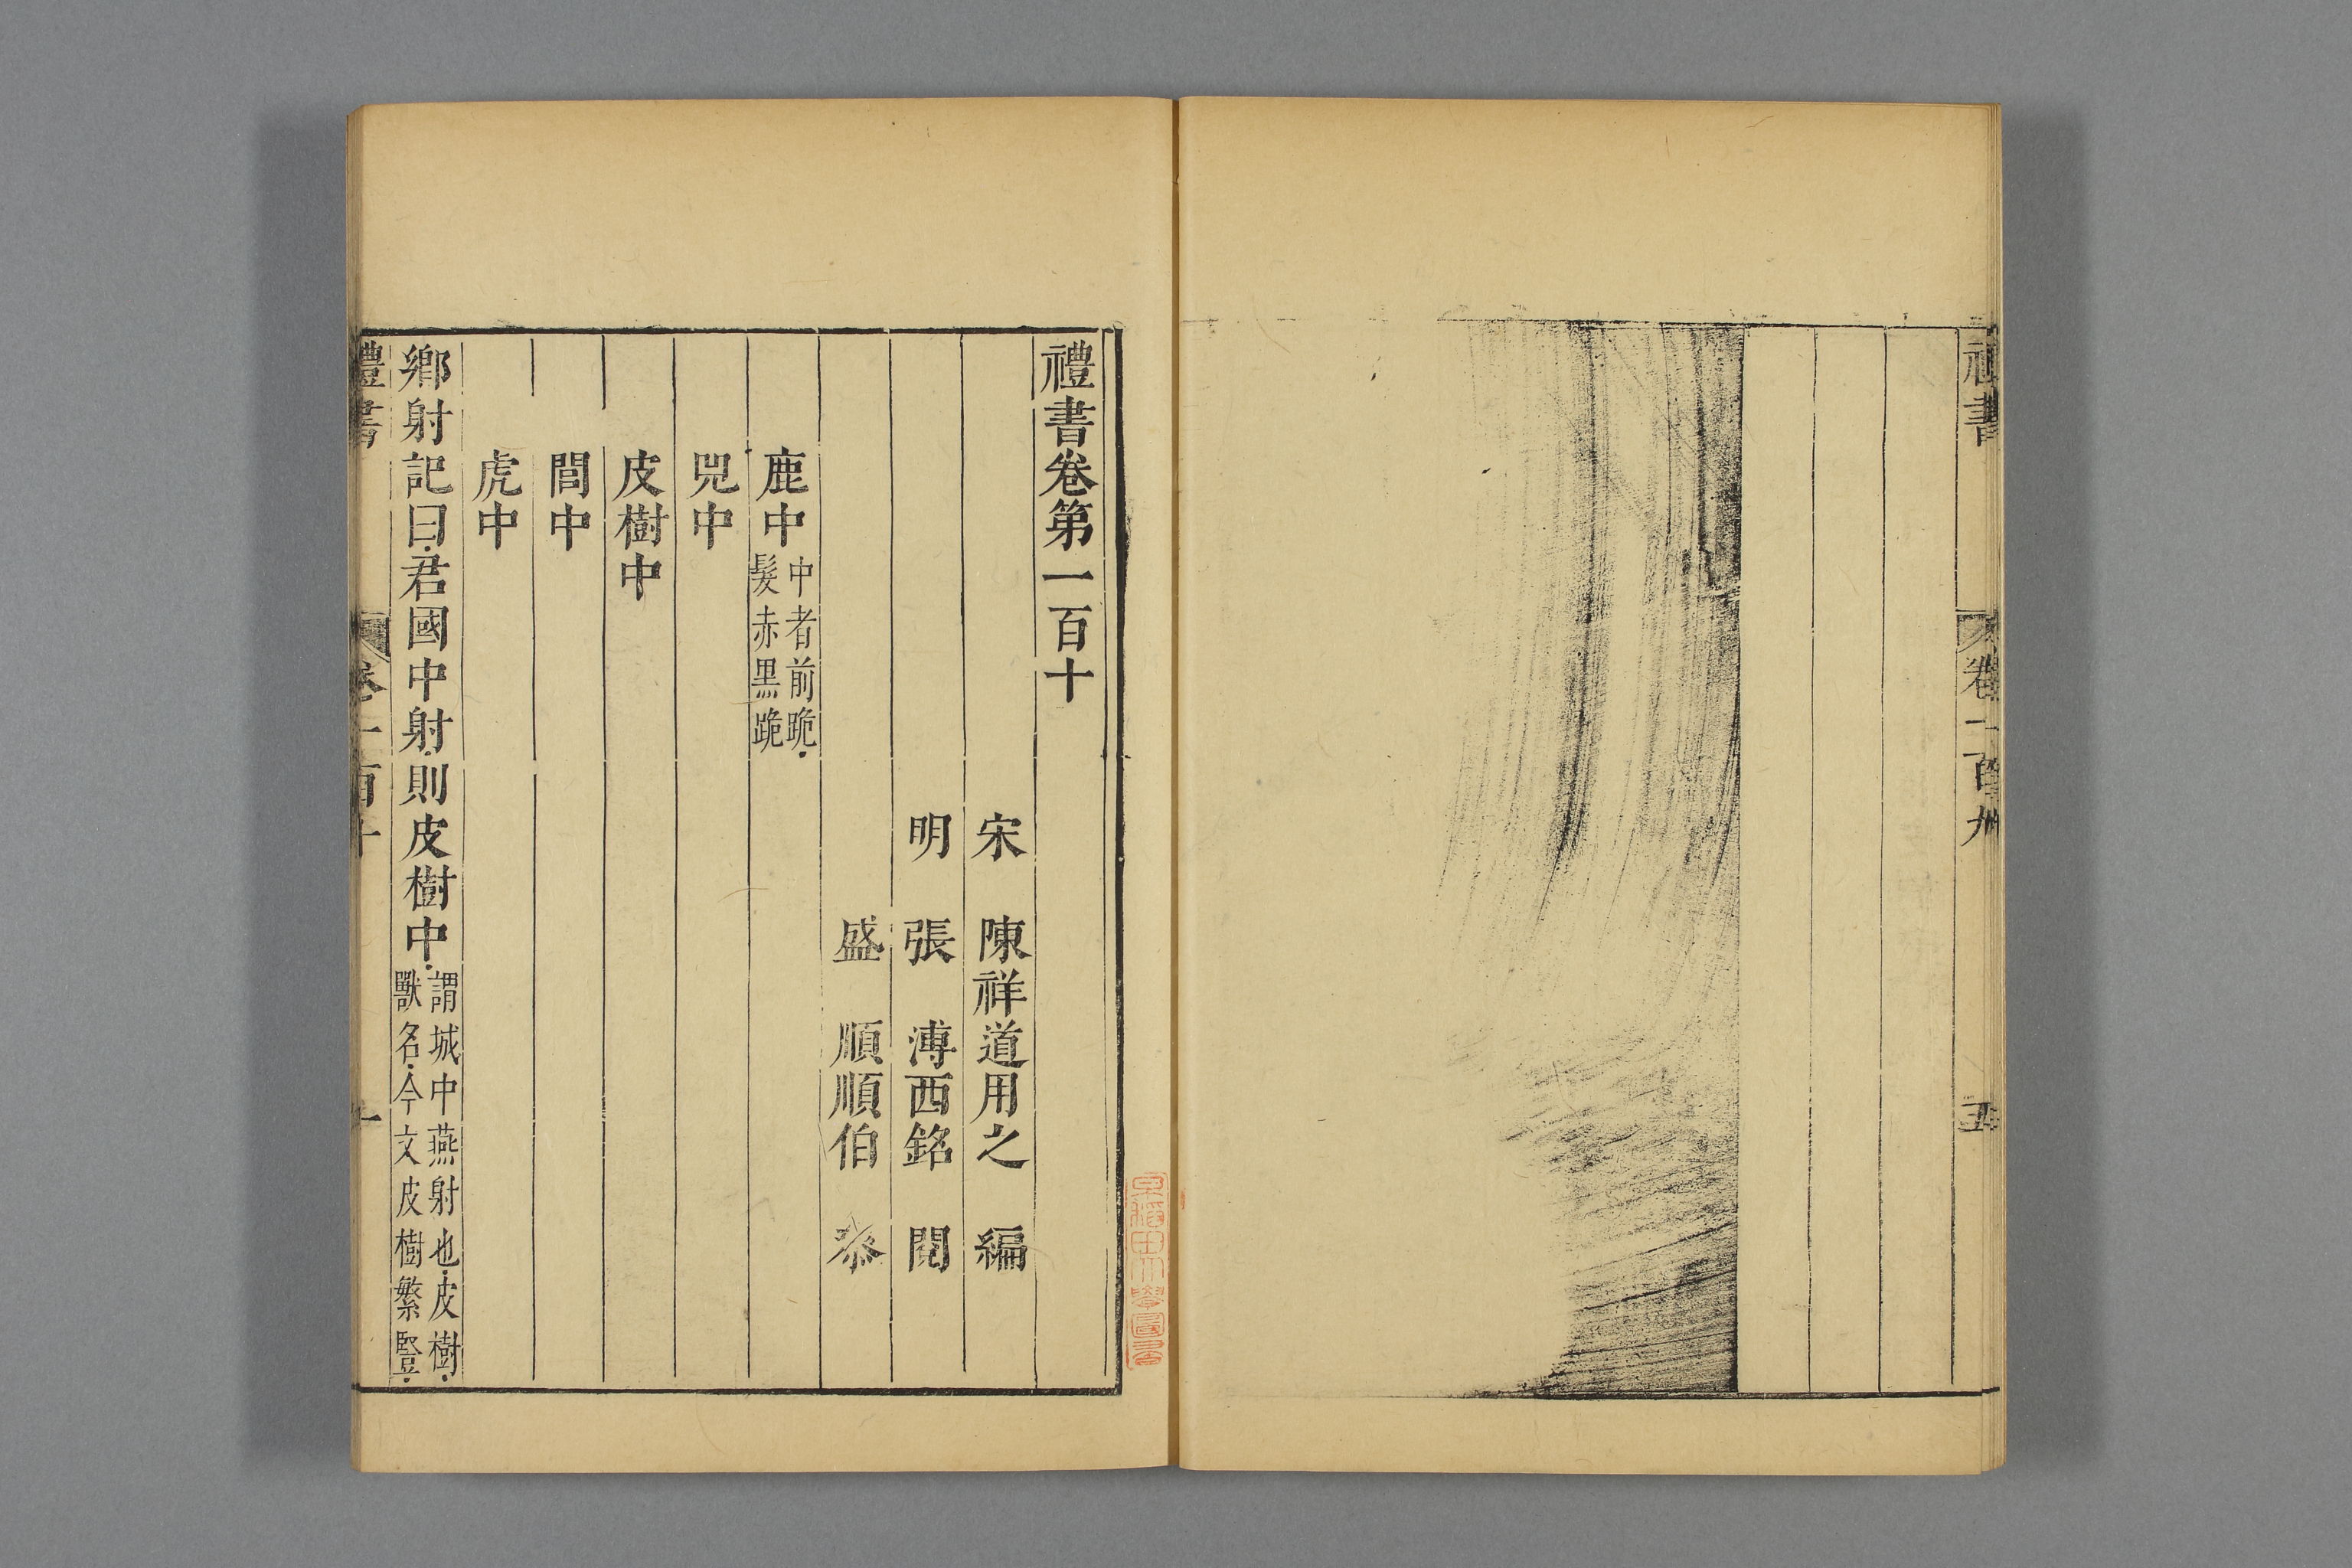 禮書
卷一百九
五
禮書卷第一百十
宋 陳祥道用之 編
明 張溥西銘 閱
盛順順伯 叅
鹿中 中者前跪髤赤黑跪
兕中
皮樹中
閭中
虎中
鄉射記曰君國中射則皮樹中 謂城中燕射也皮樹獸名今文皮樹繁豎
禮書
卷一百十
一
早稻田大學圖書